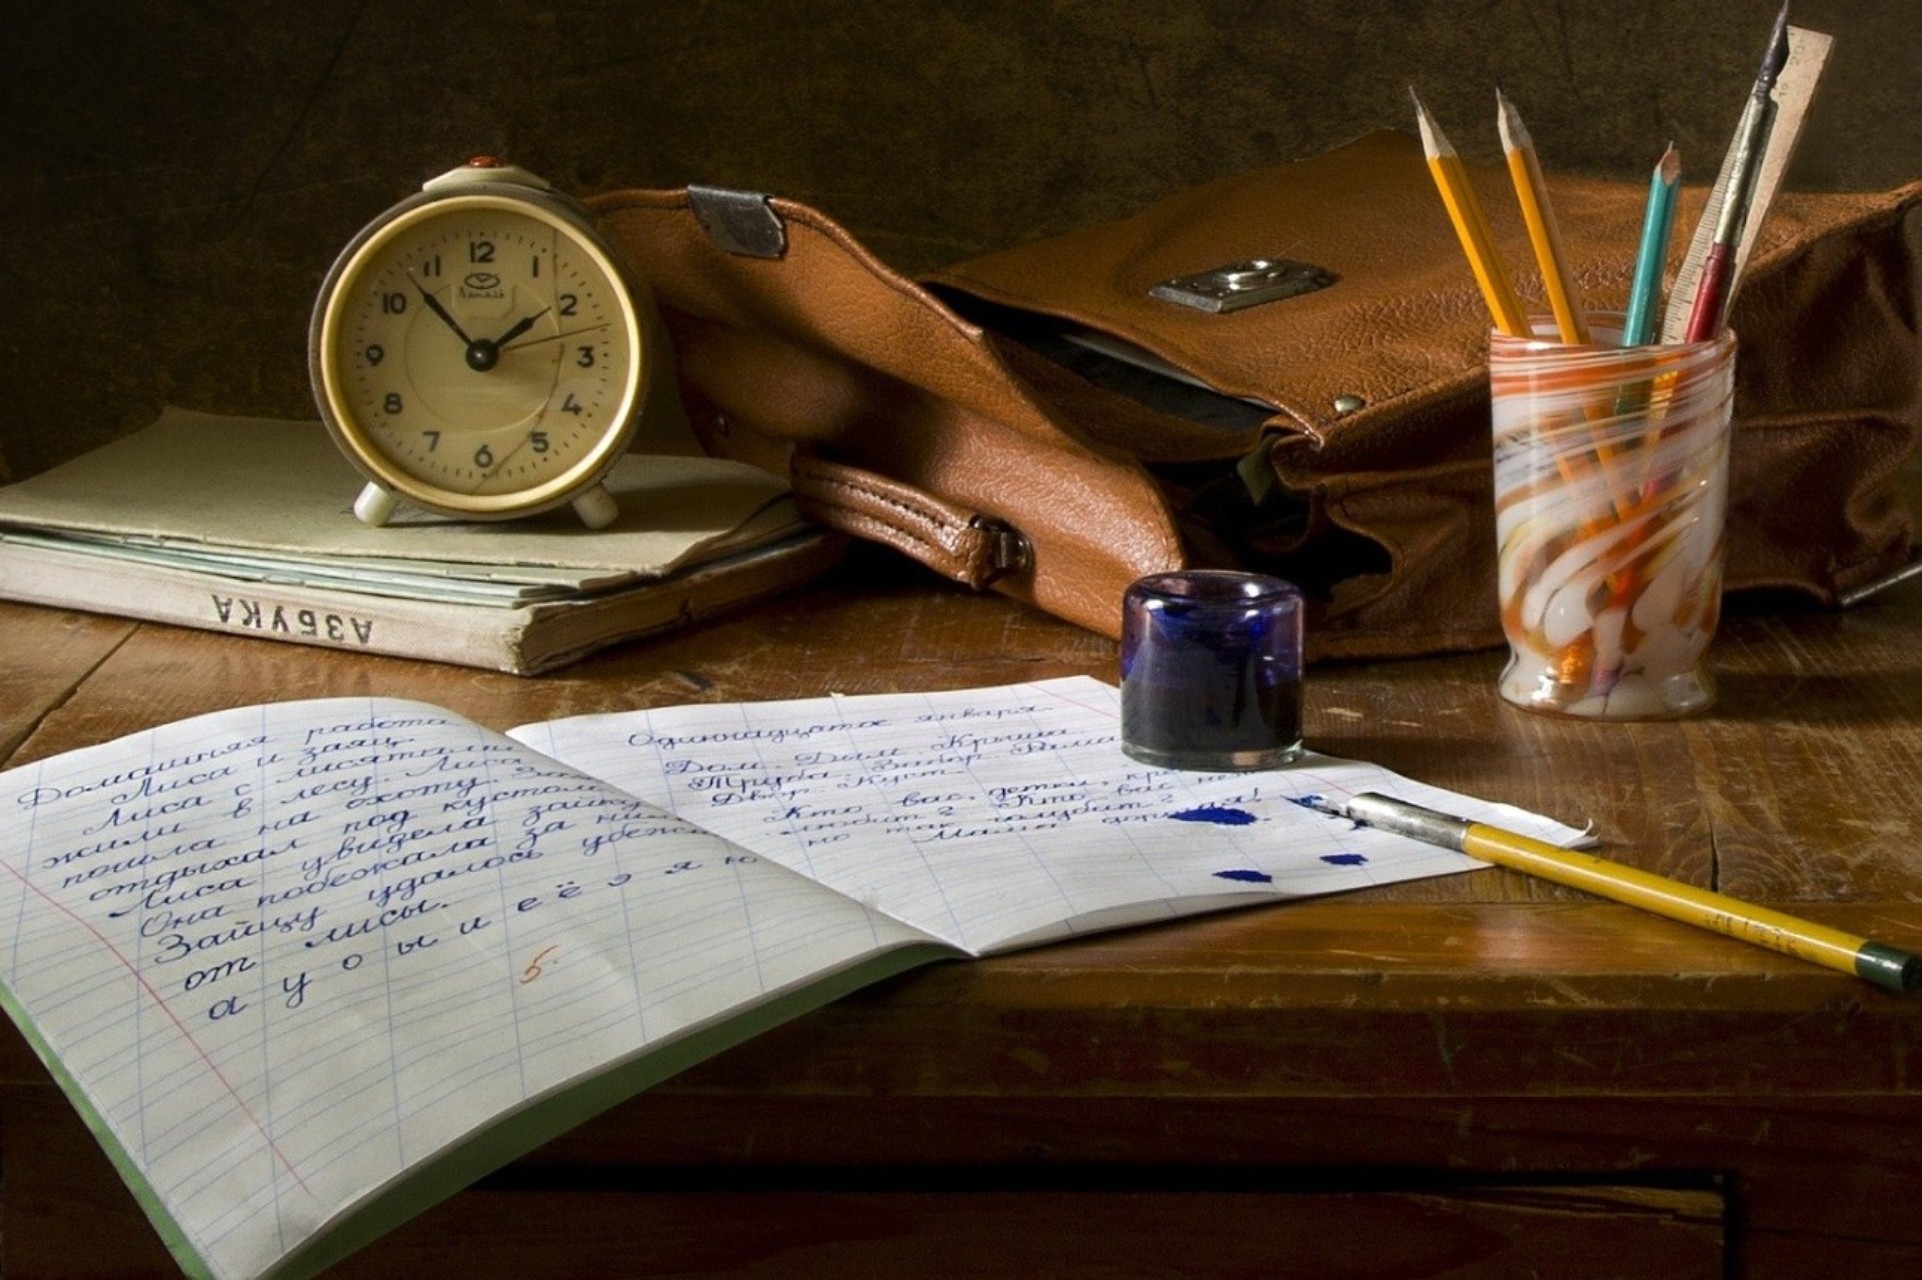 12
11 1
10 2
9 3
8 4
7 5
6
АЗБУКА
Домашняя работа
Лиса и заяц.
Лиса с лисятами
жили в лесу. Лиса
пошла на охоту. Заяц
отдыхал под кустом.
Лиса увидела зайку.
Она побежала за ним.
Зайцу удалось убежать
от лисы.
а у о ы и е ё э я ю
5.
Одиннадцатое января.
Дом. Дым. Крыша.
Труба. Забор. Рама.
Двор. Куст.
Кто вас, детки,
любит? Кто вас
но так голубит?
Мама
20